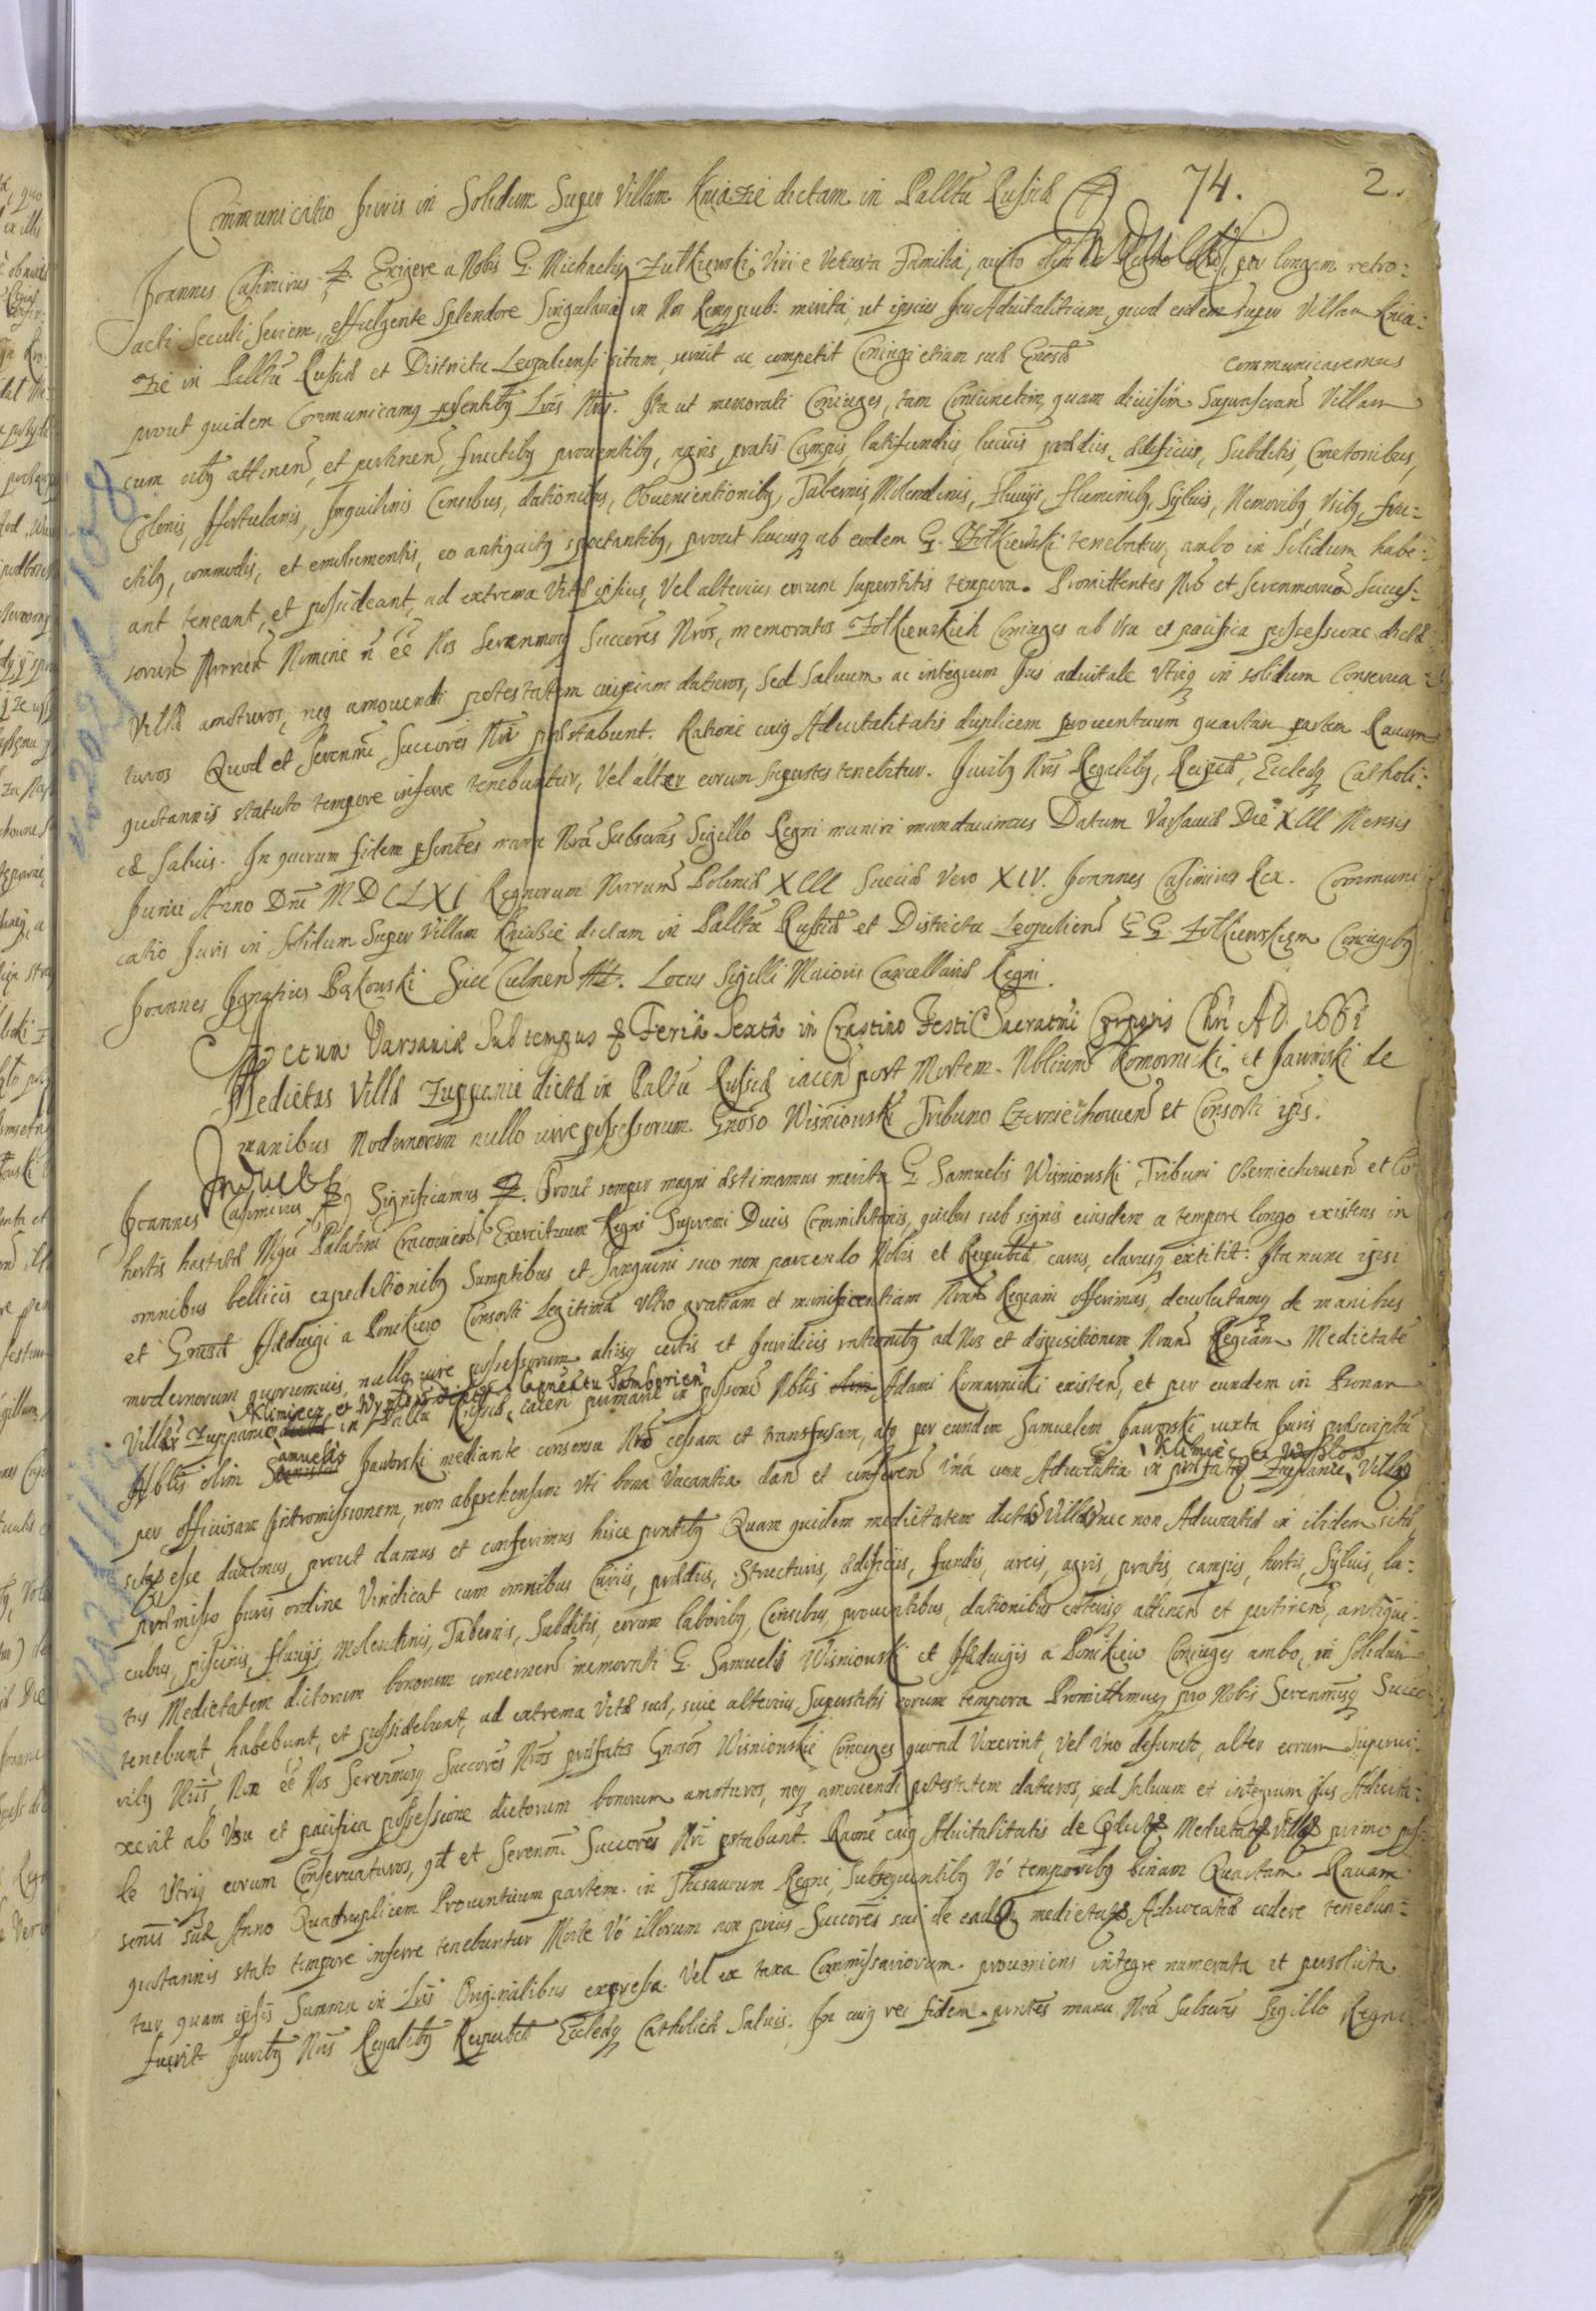 74. 2.
Communicatio Juris in Solidum Super Villam Kniazie dictam in Palltu Russiæ
Indultu
Joannes Casimirus Exigere a Nobis G. Michaelis Zulkiewski, Viri e Vetusta Familia, per longam retro:
acti Seculi Seriem, effulgente Splendore Singularia in Nos Remqpub: merita, ut ipsius Jus Advitalitium, quod eidem super Villam Knia:
zie in Palltu Russiæ et Districtu Leopoliensi sitam, servit ac competit Coniugi etiam suæ Gnosæ communicaremus
prout quidem Communicamq pſentibq Lris Nris. Ita ut memorati Coniuges, tam Coniunctim, quam divisim Suprascram Villam
cum oibq attinen, et pertinen, fructibq proventibq, agris, pratis Campis, latifundiis, lucris prædiis, ædificiis, Subditis, Cmetonibus,
Colonis, Hortulanis, Inquilinis Censibus, dationibus, Obuenientionibq, Tabernis, Molendinis, Fluuijs, Fluminibq, Syluis, Nemoribq, Usibq, fru:
ctibq, commodis, et emolumentis, eo antiquitq spectantibq, prout hucusq ab eodem G. Zolkiewski tenebatur, ambo in Solidum habe:
ant teneant, et possideant, ad extrema Vitæ ipsius, Vel alterius eorum superstitis tempora. Promittentes Nro et Serenmorum Succes:
sorum Nrorum Nomine n ee Nos Serenmosq Succores Nros, memoratos Zolkiewskich Coniuges ab Usu et pacifica possessione dictæ
Villæ amoturos, neq amovendi potestatem cuipiam daturos, Sed Saluum ac integrum Jus aduitale Utriq in solidum Conserua:
turos Quod et Serenmi Succores Nri præstabunt. Ratione cuiq Aduitalitatis duplicem prouentuum quartam partem Rauam
quotannis statuto tempore inferre tenebuntur, Vel alter eorum superstes tenebitur. Juribq Nris Regalibq, Reipcæ, Ecclæq Catholi:
cæ Saluis. In quorum fidem pſentes manu Nra Subscras Sigillo Regni muniri mandauimus Datum Varsauiæ Die XIII Mensis
Junii Anno Dni MDCLXI Regnorum Nrorum Poloniæ XIII Sueciæ Vero XIV. Joannes Casimirus Rex. Communi
catio Juris in Solidum Super Villam Kniazie dictam in Palltu Russiæ et Districtu Leopolien GG. Zolkiewskiem Coniugibq
Joannes Ignatius Bąkowski Succ Culmen Locus Sigilli Maioris Cancellariæ Regni.
Actum Varsauiæ Sub tempus Feria Sexta in Crastino Festi Sacratmi Corporis Chri AD. 1661
Medietas Villæ Zuppanie dictæ in Paltu Russiæ iacen post Mortem Nobliumq Komornicki, et Jaworski de
manibus Modernorum nullo iure possessorum. Gnoso Wisniowski Tribuno Czerniechouien et Consorti ipsis.
Indultu
Joannes Casimirus Significamus. Prout semper magni æstimamus merita G. Samuelis Wisniowski Tribuni Czerniechouien et Co
hortis hastatæ Mgci Palatini Cracouien, Exercituum Regni Supremi Ducis Commilitonis, quibus sub signis eiusdem a tempore longo existens in
omnibus bellicis expeditionibq Sumptibus et Sanguini suo non parcendo Nobis et Reipubcæ carus, clarusq extitit: Ita nunc ipsi
et Gnosæ Hæduigi a Ponikiew Consorti Legitimæ Ultro gratiam et munificentiam Nram Regiam offerimus, deuolutamq de manibus
modernorum quorumuis, nullo iure possessorum alijsq certis et Juridicis rationibq ad Nos et dispositionem Nram Regiam Medietate
Klimiecz et Laonectu Samborien
Villæ Zuppanie in Palltu Russiæ, iacen primam in possone Nblis Adami Komarnicki existen, et per eundem in Personam
amuelis
Nblis olim Jaworski mediante consensu Nro cessam et transfusam, atq per eundem Samuelem Jaworski iuxta Juris præscriptu
Klimiec et
per officiosam Intromissionem, non abprehensam Uti bona Vacantia dan et conferen Una cum Aduocatia in præfatis Zuppanie Villis
esse duximus, prout damus et conferimus hisce præntibq Quam quidem medietatem dictæ Villæ nec non Aduocatiæ in ibidem sitæ,
præmisso Juris ordine Vindicat cum omnibus Curiis, prædiis, Structuris, ædificiis, fundis, areis, agris, pratis, campis, hortis, Syluis, la:
cubus, piscinis, fluuijs, Molendinis, Tabernis, Subditis, eorum laboribq, Censibus, prouentibus, dationibus cæterisq attinen et pertinen, antiqui:
tus Medietatem dictorum bonorum concernen memorati G. Samuelis Wisniowski et Hæduigis a Ponikiew Coniuges ambo, in Solidum
tenebunt, habebunt, et possidebunt, ad extrema Vitæ suæ, siue alterius Superstitis eorum tempora Promittimusq pro Nobis Serenmisq Succe
ribq Nris, Non ee Nos Serenmosq Succores Nros præfatos Gnosos Wisniowskie Coniuges quoad Vixerint, Vel Uno defuncto, alter eorum Superui:
xerit ab Usu et pacifica possessione dictorum bonorum amoturos, neq amouendi potestatem daturos, sed Saluum et integrum Jus Aduita:
le Utriq eorum Conseruaturos, qd et Serenmi Succores Nri pstabunt. Raone cuiq Aduitalitatis de Medietate Villæ primo pos:
sonis suæ Anno Quadruplicem Prouentuum partem in Thesaurum Regni, Subsequentibq Vo temporibq binam Quartam Rauam
quotannis stato tempore inferre tenebuntur Morte Vo illorum non prius Succores sui de eadem medietate Aduocatia cedere tenebun:
tur quam ipsis Summa in Lris Originalibus expressa Vel ex taxa Commissariorum proueniens integre numerata et persoluta
fuerit Juribq Nris Regalibq Reipubcæ Ecclæq Catholicæ Saluis. In cuiq rei fidem præntes manu Nra Subscras Sigillo Regni